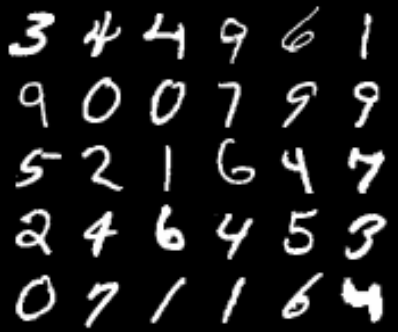 3 4 4 9 6 1
9 0 0 7 9 9
5 2 1 6 4 7
2 4 6 4 5 3
0 7 1 1 6 4